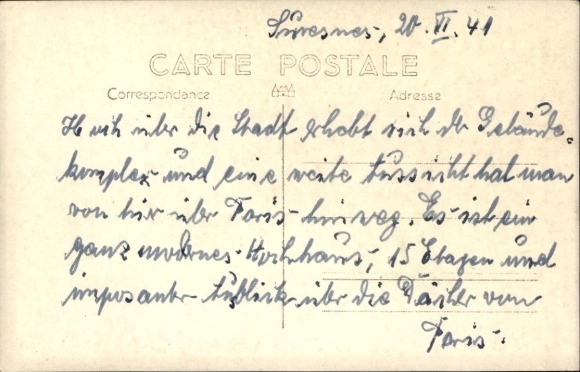 Suresnes, 20. VI. 41
CARTE POSTALE
Correspondance
Adresse
Hoch über die Stadt erhebt sich der Gebäude-
komplex und eine weite Aussicht hat man
von hier über Paris hinweg. Es ist ein
ganz modernes Hochhaus, 15 Etagen und
imposanter Ausblick über die Dächer von
Paris.